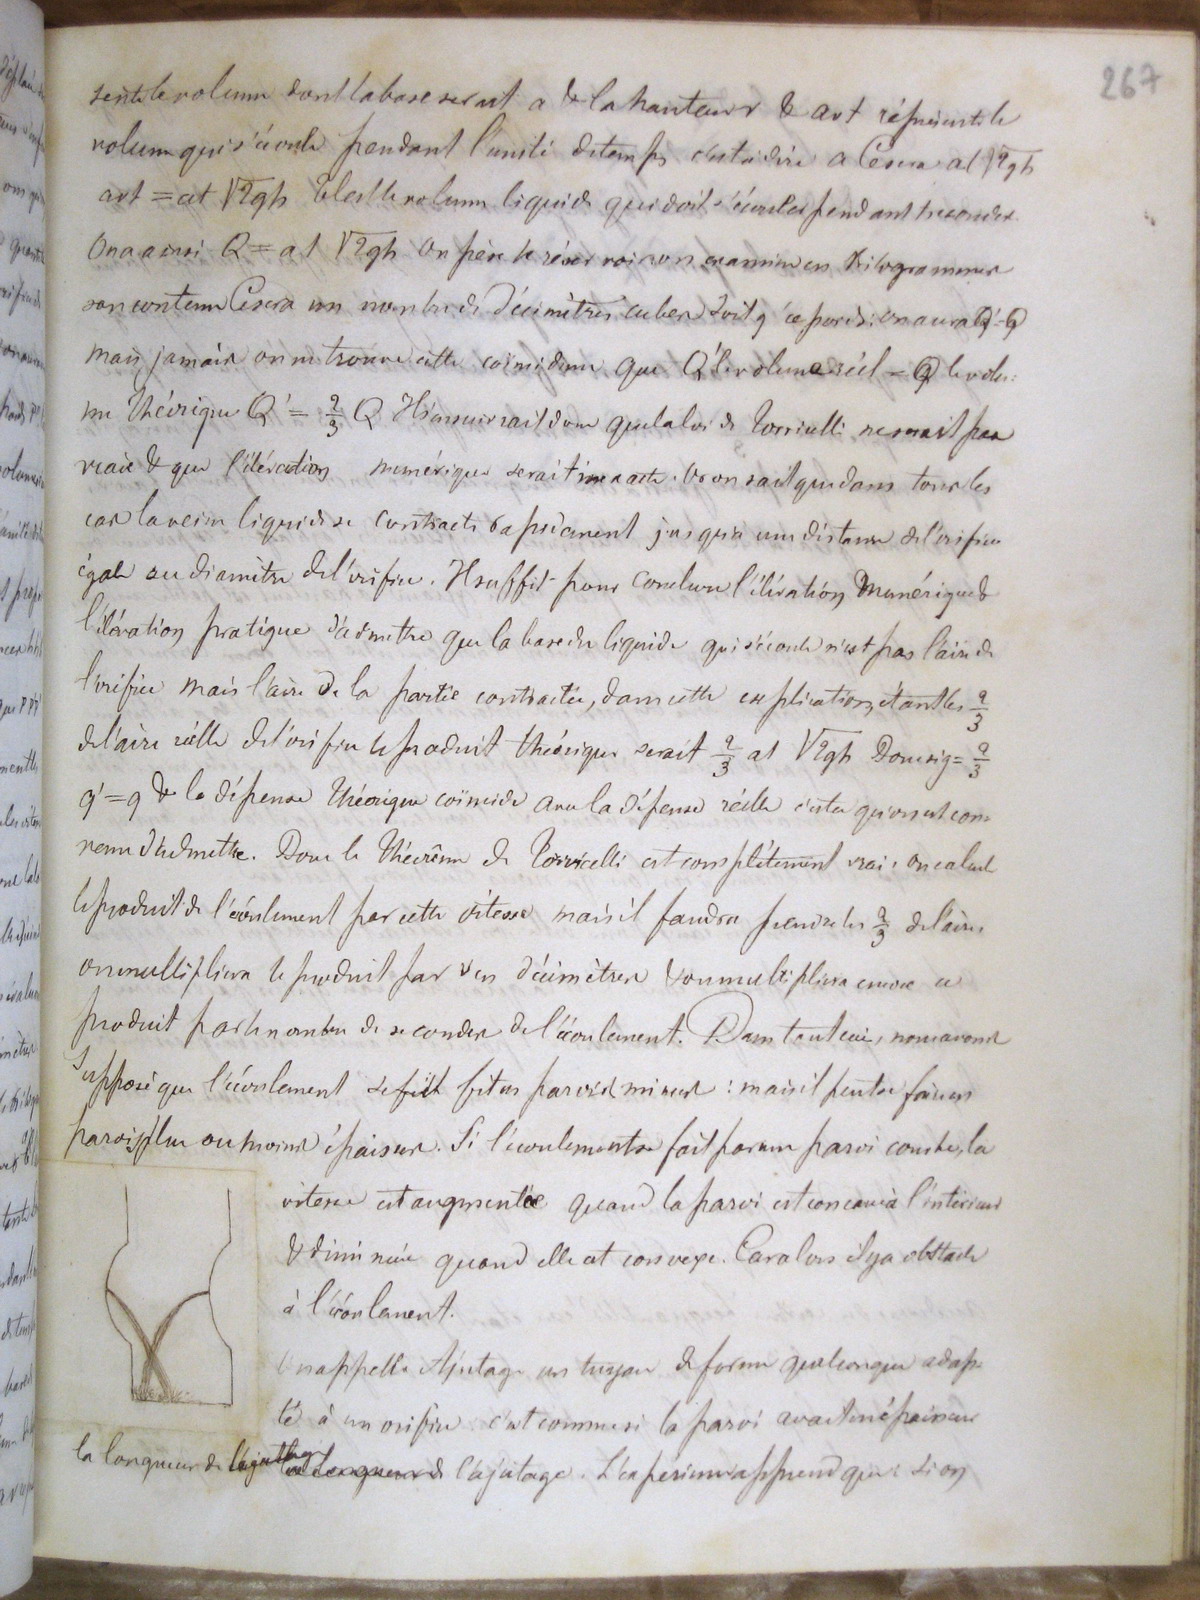 267
sente le volume dont la base serait a & la hauteur & avt représente le
volume qui s'écoule pendant l'unité de temps c'est à dire a Ce sera at √2gh
avt = at √2gh tel est le volume liquide qui doit s'écouler pendant t secondes.
On a ainsi Q = at √2gh On pèse le réservoir on examine en kilogrammes
son contenu Ce sera un nombre de décimètres cubes soit q' ce poids: on aura Q'=Q
mais jamais on ne trouve cette coïncidence que Q' le volume réel = Q le volu:
me théorique Q' = 2/3 Q Il s'ensuivrait donc que la loi de Torricelli ne serait pas
vraie & que l'élévation numérique serait inexacte. Or on sait que dans tous les
cas la veine liquide se contracte rapidement jusqu'à une distance de l'orifice
égale au diamètre de l'orifice. Il suffit pour conclure l'élévation numérique &
l'élévation pratique d'admettre que la base du liquide qui s'écoule n'est pas l'aire de
l'orifice mais l'aire de la partie contractée, dans cette explication, étant les 2/3
de l'aire réelle de l'orifice le produit théorique serait 2/3 at √2gh Donc si q = 2/3
q' = q & la dépense théorique coïncide avec la dépense réelle c'est ce qu'on est con=
venu d'admettre. Donc le théorême de Torricelli est complètement vrai: on calcule
le produit de l'écoulement par cette vitesse mais il faudra prendre les 2/3 de l'aire,
on multipliera le produit par v en décimètres & on multipliera encore ce
produit par le nombre de secondes de l'écoulement. Dans tout ceci, nous avons
supposé que l'écoulement se fait fit en parois minces: mais il peut se faire en
parois plus ou moins épaisses. Si l'écoulement se fait par une paroi courbe, la
vitesse est augmentée quand la paroi est concave à l'intérieur
& diminuée quand elle est convexe. Car alors il y a obstacle
à l'écoulement.
On appelle Ajutage un tuyau de forme quelconque adap=
té à un orifice. c'est comme si la paroi avait une épaisseur
la longueur de l'ajutage. L'expérience apprend que: si on